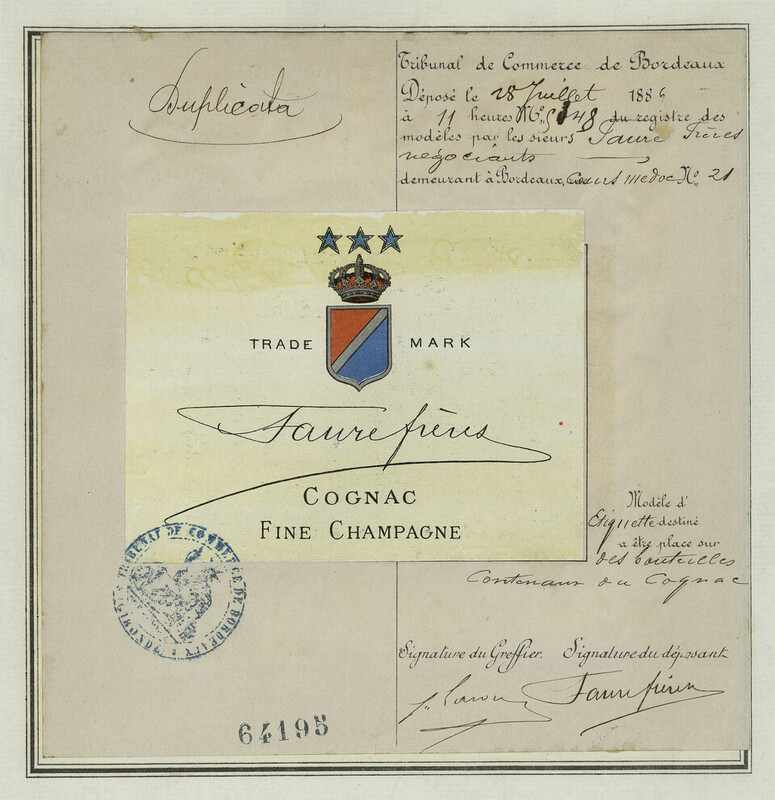 Duplicata
Tribunal de Commerce de Bordeaux
Déposé le 28 Juillet 1886
à 11 heures du registre des
modèles par les sieurs Faure Frères
négociants
demeurant à Bordeaux, cours medoc No. 21
TRADE MARK
Faure frères
COGNAC
FINE CHAMPAGNE
Modèle d'
Etiquette destiné
a être place sur
des bouteilles
contenant du Cognac
TRIBUNAL DE COMMERCE DE BORDEAUX
Signature du Greffier. Signature du déposant
Faure frères
64195